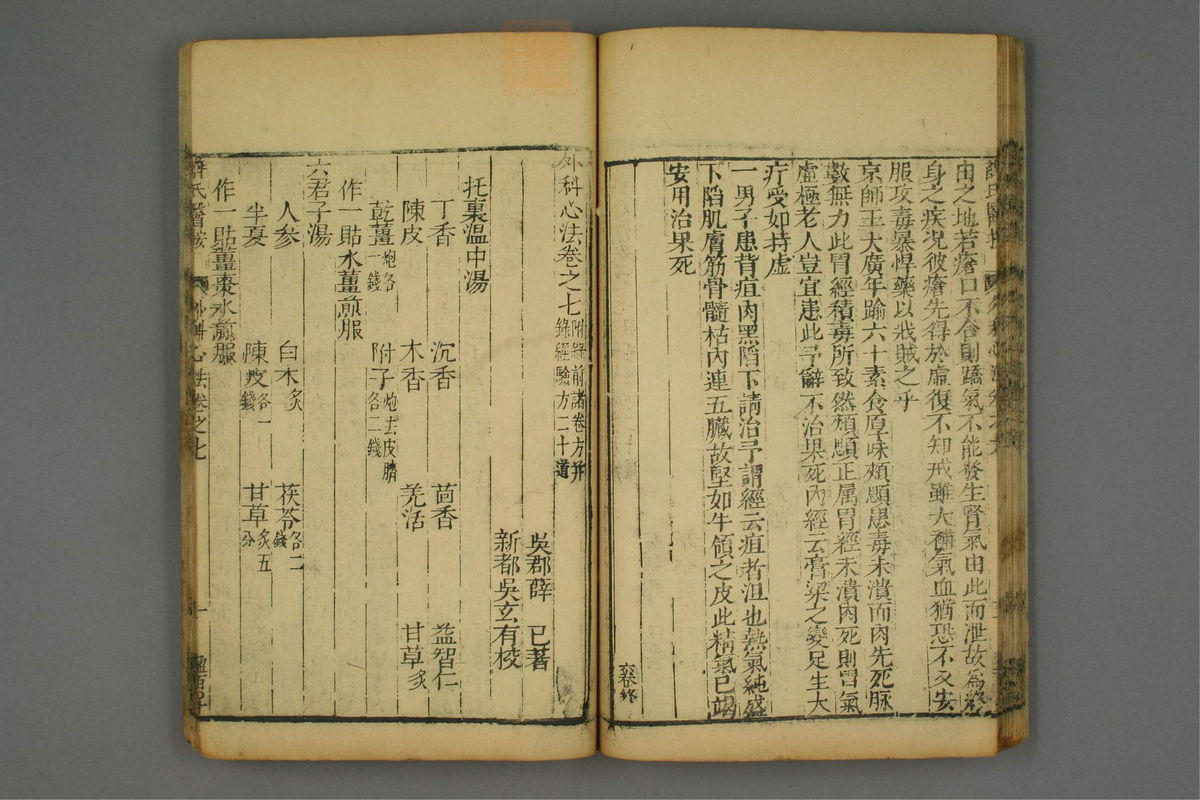 由之地若瘡口不合則蹻氣不能發生腎氣由此而泄故為終
身之疾况彼瘡先得於虛復不知戒雖大補氣血猶恐不及安
服攻毒暴悍藥以戕賊之乎
京師王大廣年踰六十素食厚味頰顋患毒未潰而肉先死脉
數無力此胃經積毒所致然頰顋正属胃經未潰肉死則胃氣
虛極老人豈宜患此予辭不治果死内經云膏粱之變足生大
疔受如持虛
一男子患背疽肉黑陷下請治予謂經云疽者沮也熱氣純盛
下陷肌膚筋骨髓枯内連五臟故堅如牛領之皮此精氣已竭
安用治果死
六卷終
外科心法卷之七 附録前諸卷方并
録經驗方二十道
吳郡薛 已著
新都吳玄有校
托裏温中湯
丁香 沉香 茴香 益智仁
陳皮 木香 羌活 甘草炙
乾薑炮各一錢 附子炮去皮臍各二錢
作一貼水薑煎服
六君子湯
人參 白木炙 茯苓各二錢
半夏 陳皮各一錢 甘草炙五分
作一貼薑棗水煎服
薛氏醫按 外科心法卷之七 一